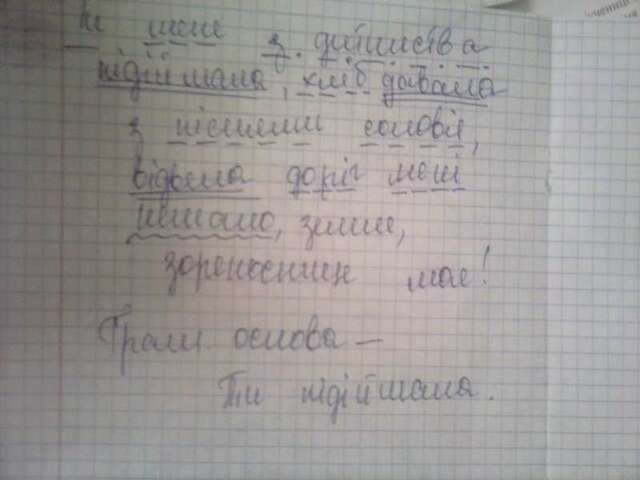 Ти мене з дитинства
підіймала, хліб давала
з піснями солов'я,
відкрила доріг мені
немало, земле,
зореносице моя!
Грам. основа —
Ти підіймала.